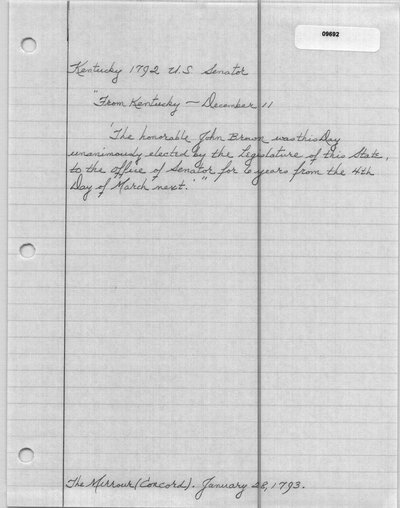 09692
Kentucky 1792 U.S. Senator
"From Kentucky — December 11
'The honorable John Brown was this Day
unanimously elected by the Legislature of this State,
to the Office of Senator for 6 years from the 4th
Day of March next.'"
The Mirrour (Concord). January 28, 1793.